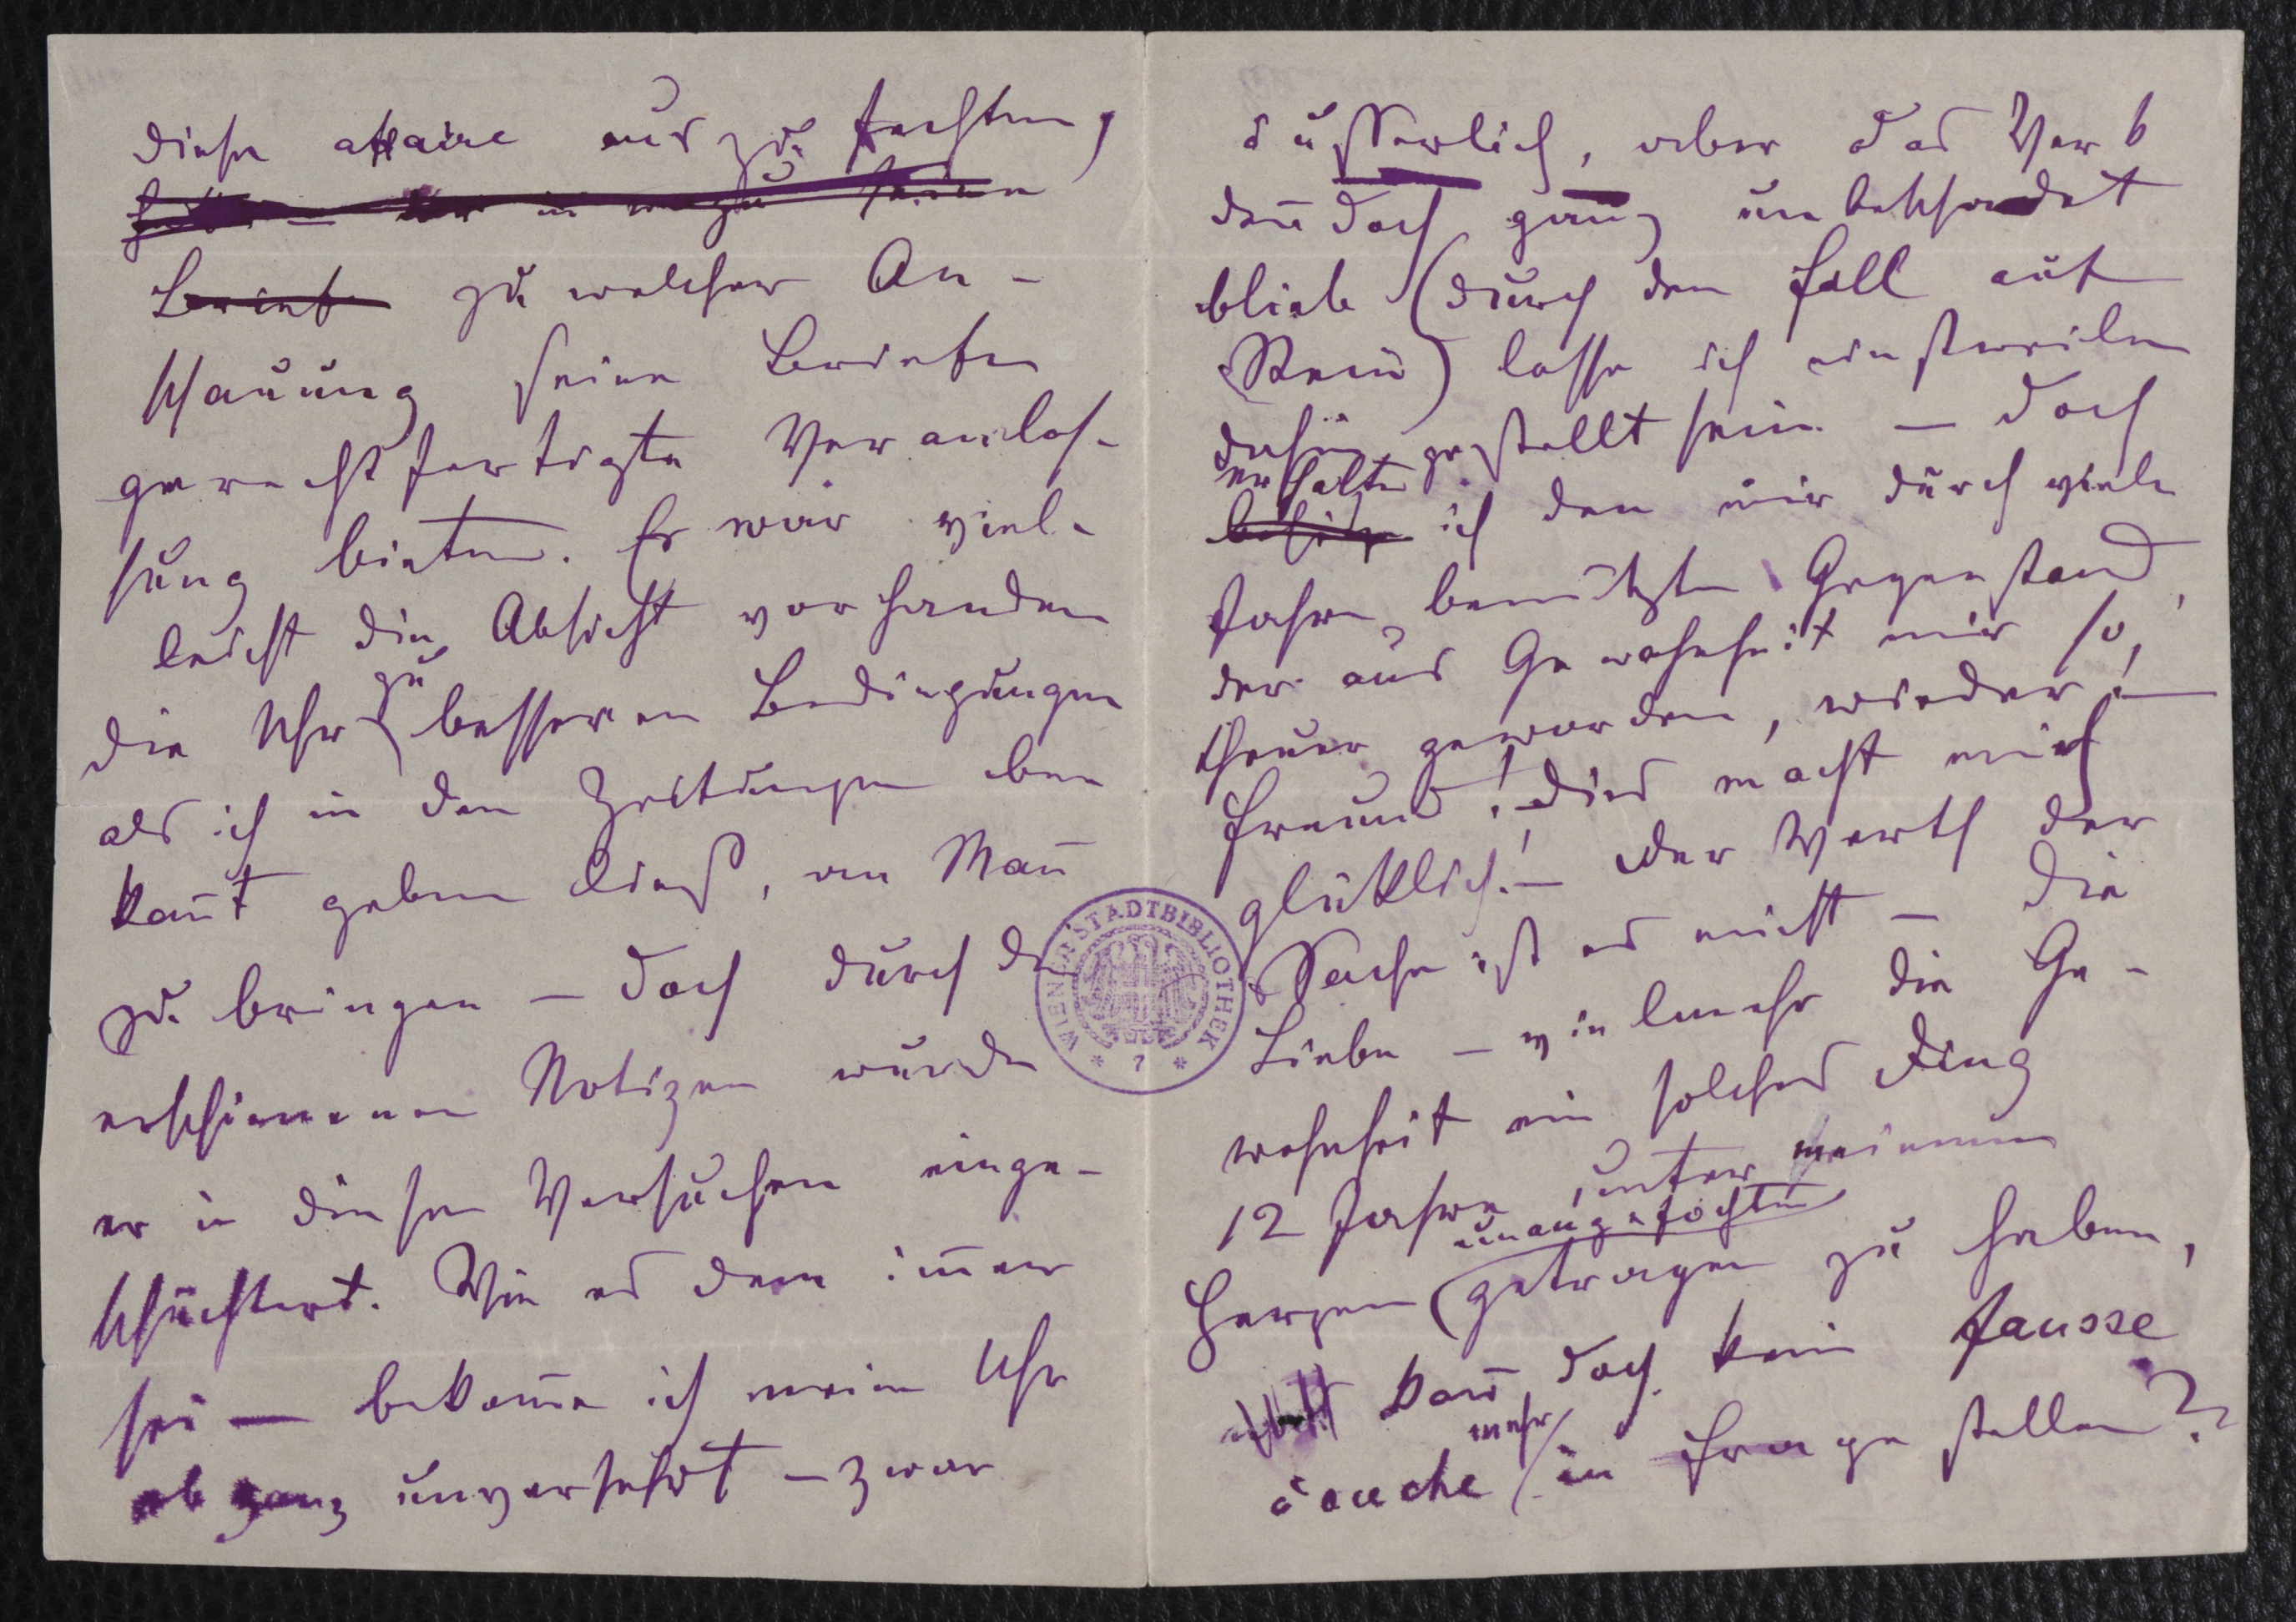 diese affaire aus zu fechten,
Briefe zu welcher An-
schauung seine Briefe
gerechtfertigte Veranlas-
sung bieten. Es war viel-
leicht die Absicht vorhanden
die Uhr zu besseren Bedingungen
als ich in den Zeitungen be
kañt geben ließ, an Mañ
zu bringen – doch durch die
erschienenen Notizen wurde
er in diesen Versuchen einge-
schüchtert. Wie es dem im̄er
sei – bekom̄e ich meine Uhr
ob ganz unversehrt – zwar
äusserlich, aber das Werk
den̄doch ganz unbeschadet
bliebe (durch den Fall auf
Stein) lasse ich einstweilen
dahin gestellt sein – doch
erhalte
ich den mir durch viele
Jahre benützten Gegenstand,
der aus Gewohnheit mir so,
theuer geworden, wieder! –
Freund! Dies macht mich
glücklich! – Der Werth der
Sache ist es nicht – die
Liebe – vielmehr die Ge-
wohnheit ein solches Ding
12 Jahre unter meinem
unangefochten
Herzen getragen zu haben,
kañ doch kein fausse
mehr
couche in Frage stellen?
WIENER STADTBIBLIOTHEK
* 7 *